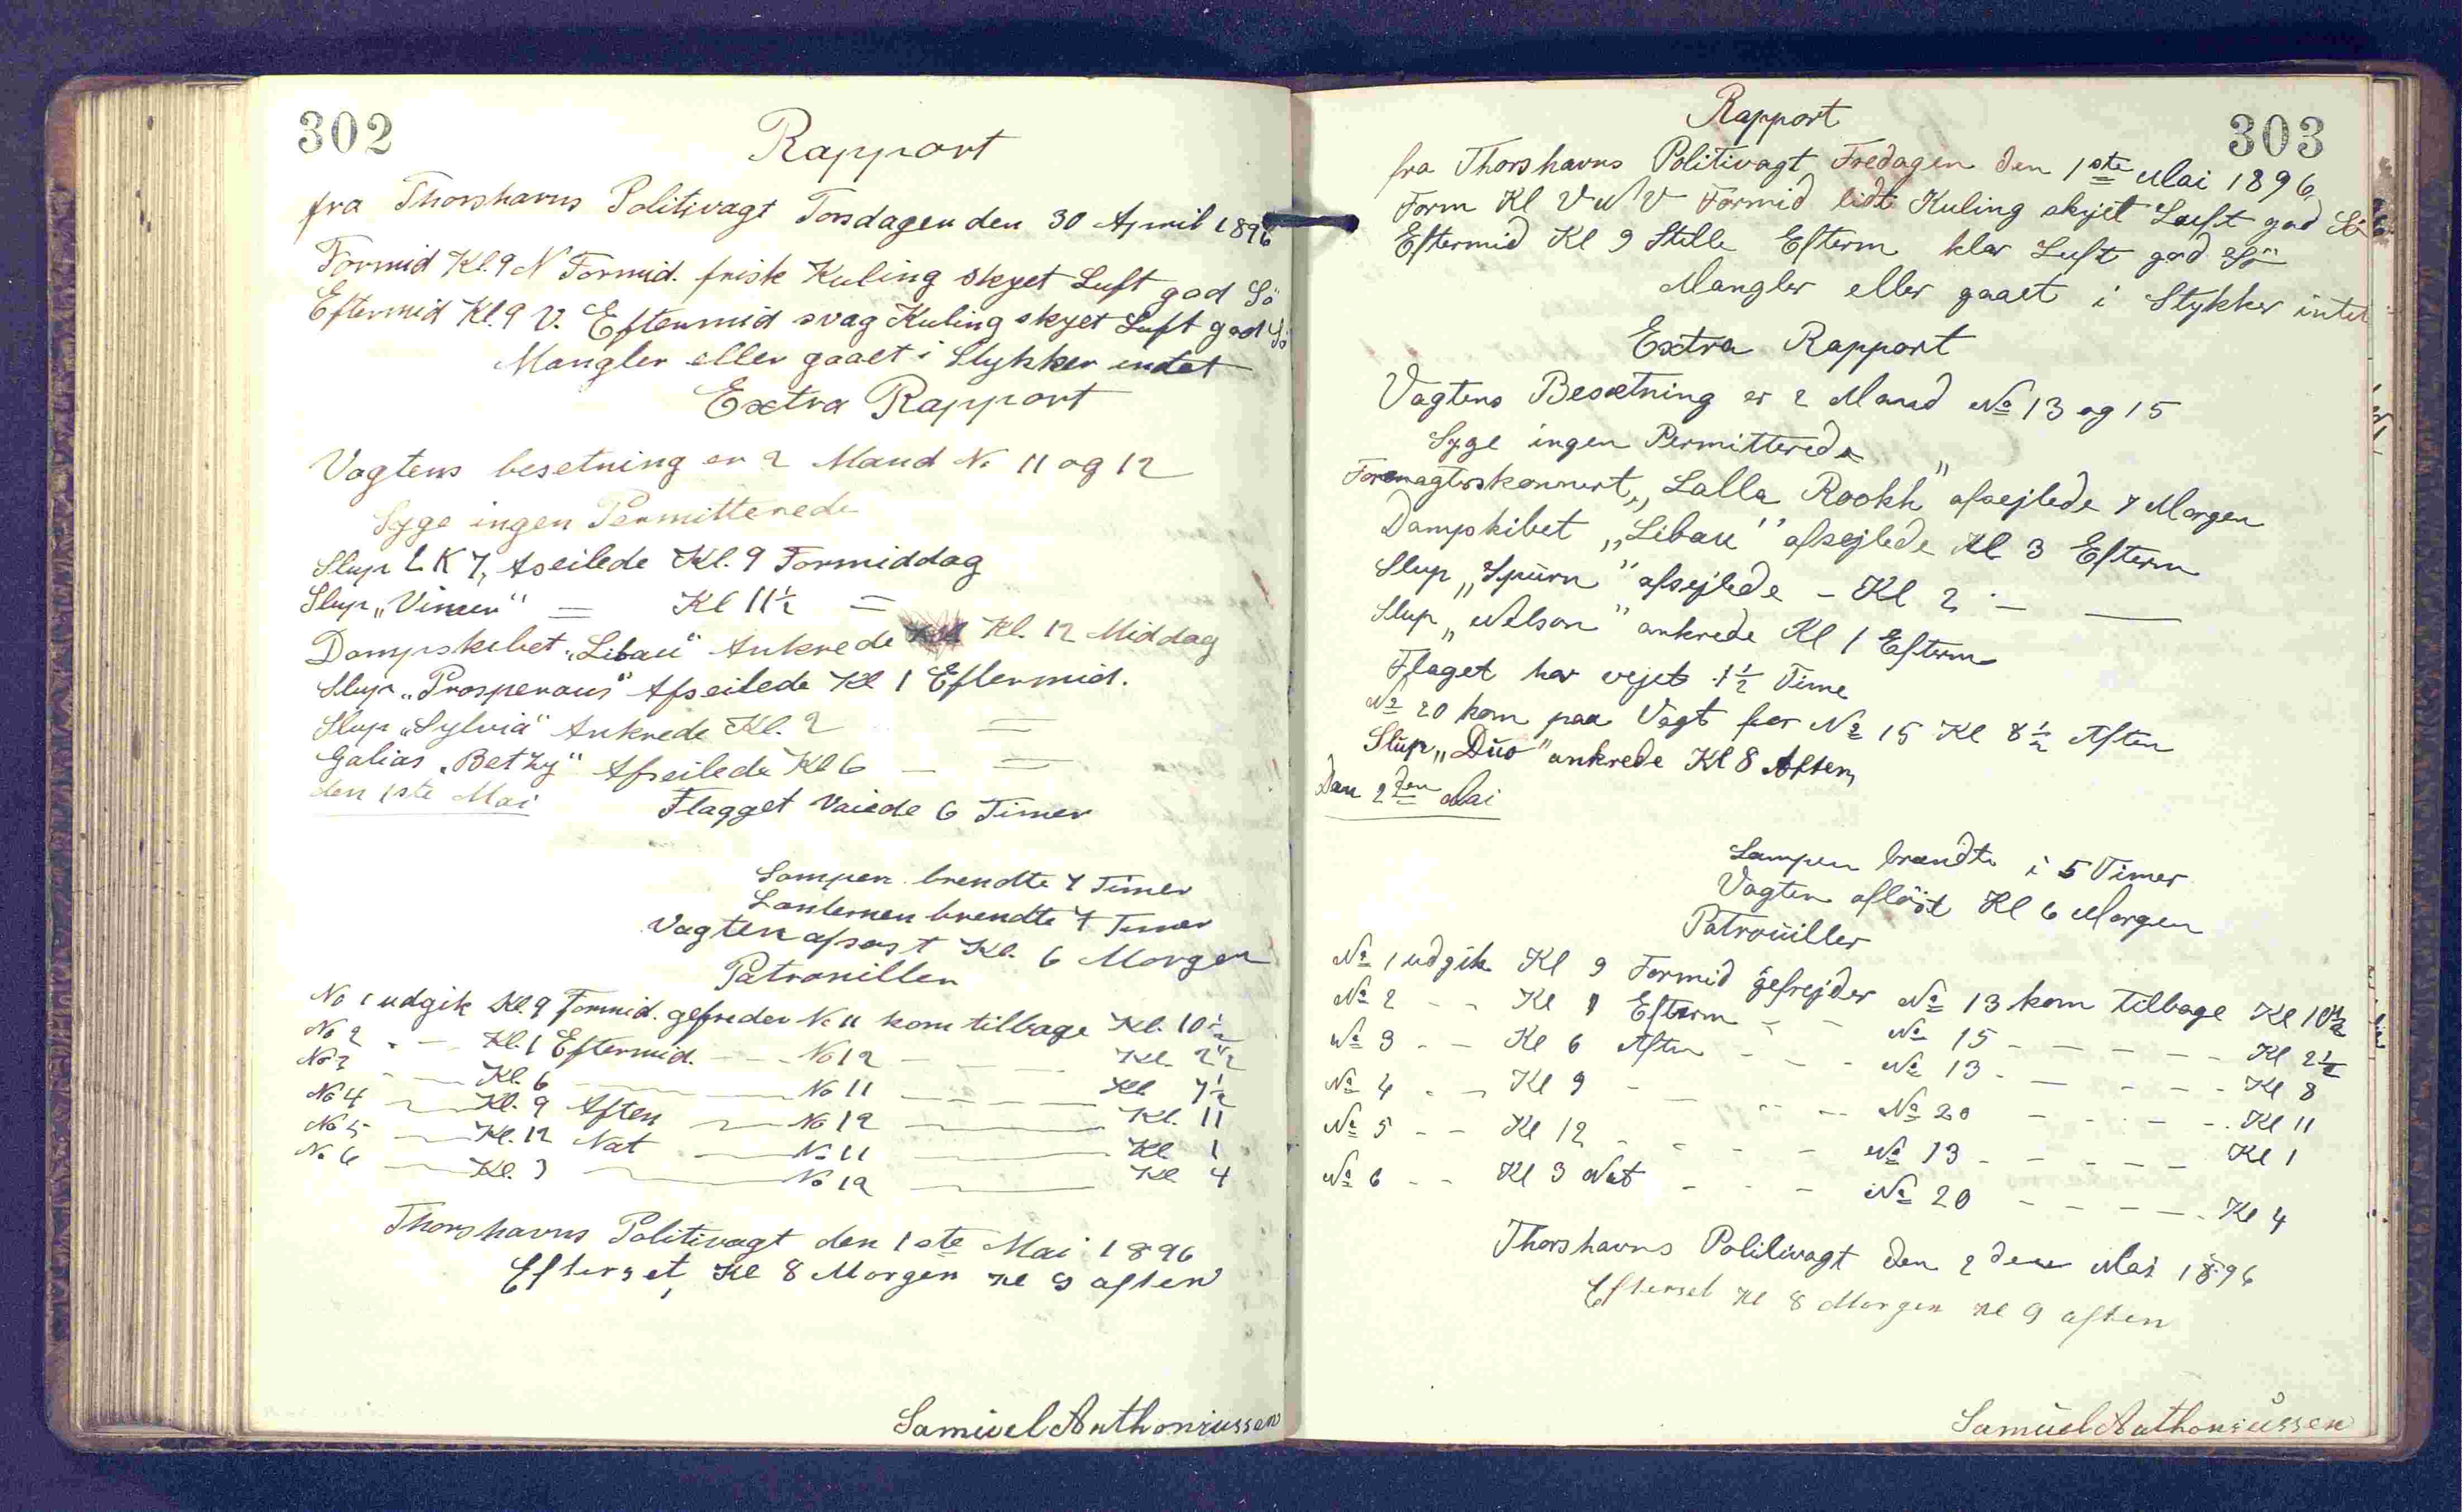 302
Rapport
fra Thorshavns Politivagt Torsdagen den 30 April 1896
Formid Kl. 9 N Formid. frisk Kuling skyet Luft god Sö
Eftermid Kl. 9 V. Eftermid svag Kuling skyet Luft god Sö
Mangler eller gaaet i Stykker intet
Extra Rapport
Vagtens besetning er 2 Mand No 11 og 12
Syge ingen Permitterede
Slup L K 7, Aseilede Kl. 9 Formiddag
Slup „Vimen“ = Kl 11½ =
Dampskibet „Libau“ Ankrede Kl. 12 Middag
Slup „Prosperous“ Afseilede Kl 1 Eftermid.
Slup „Sylvia“ Ankrede Kl. 2 =
Galias „Betzy“ Afseilede Kl 6 — =
den 1ste Mai Flagget Vaiede 6 Timer
Lampen brendte 7 Timer
Lanternen brendte 7 Timer
Vagten afsast Kl. 6 Morgen
Patrouillen
No 1 udgik Kl. 9 Formid. gefreder No 11 kom tilbage Kl. 10½
No 2 - — Kl. 1 Eftermid. — - No 12 — - — Kl. 2½
No 3 - — Kl. 6 — — No 11 — - — Kl 7½
No 4 — Kl. 9 Aften — No 12 — Kl. 11
No 5 — Kl. 12 Nat — No 11 — Kl 1
No 6 — Kl. 3 — No 12 — Kl 4
Thorshavns Politivagt den 1ste Mai 1896
Efterset, Kl 8 Morgen Kl 9 aften
Samuel Anthoniussen
303
Rapport
fra Thorshavns Politivagt Fredagen den 1ste Mai 1896,
Form Kl V Formid lidt Kuling skyet Luft god Sö
Eftermid Kl 9 Stille Efterm klar Luft god Sö
Mangler eller gaaet i Stykker intet
Extra Rapport
Vagtens Besætning er 2 Mand No 13 og 15
Syge ingen Permitterede „
Formagterskonnert „Lalla Rookh“ afsejlede 7 Morgen
Dampskibet „Libau“ afsejlede Kl 3 Efterm
Slup „Spurn“ afsejlede - Kl 2 - —
Slup „Nelson“ ankrede Kl 1 Efterm
Flaget har vejet 1½ Time
No 20 kom paa Vagt for No 15 Kl 8½ Aften
Slup „Duo“ ankrede Kl 8 Aften,
Den 2den Mai
Lampen brændte i 5 Timer
Vagten aflöst Kl 6 Morgen
Patrouiller
No 1 udgik Kl 9 Formid gefrejder No 13 kom tilbage Kl 10½
No 2 - - Kl 1 Efterm - - No 15 - - - - - Kl 2½
No 3 - - Kl 6 Aften - - - No 13 - - - - - Kl 8
No 4 - - Kl 9 - - - - No 20 - - - - Kl 11
No 5 - - Kl 12 - - - - No 13 - - - - - Kl 1
No 6 - - Kl 3 Nat - - - No 20 - - - - - Kl 4
Thorshavns Politivagt den 2den Mai 1896
Efterset Kl 8 Morgen Kl 9 aften
Samuel Anthoniussen